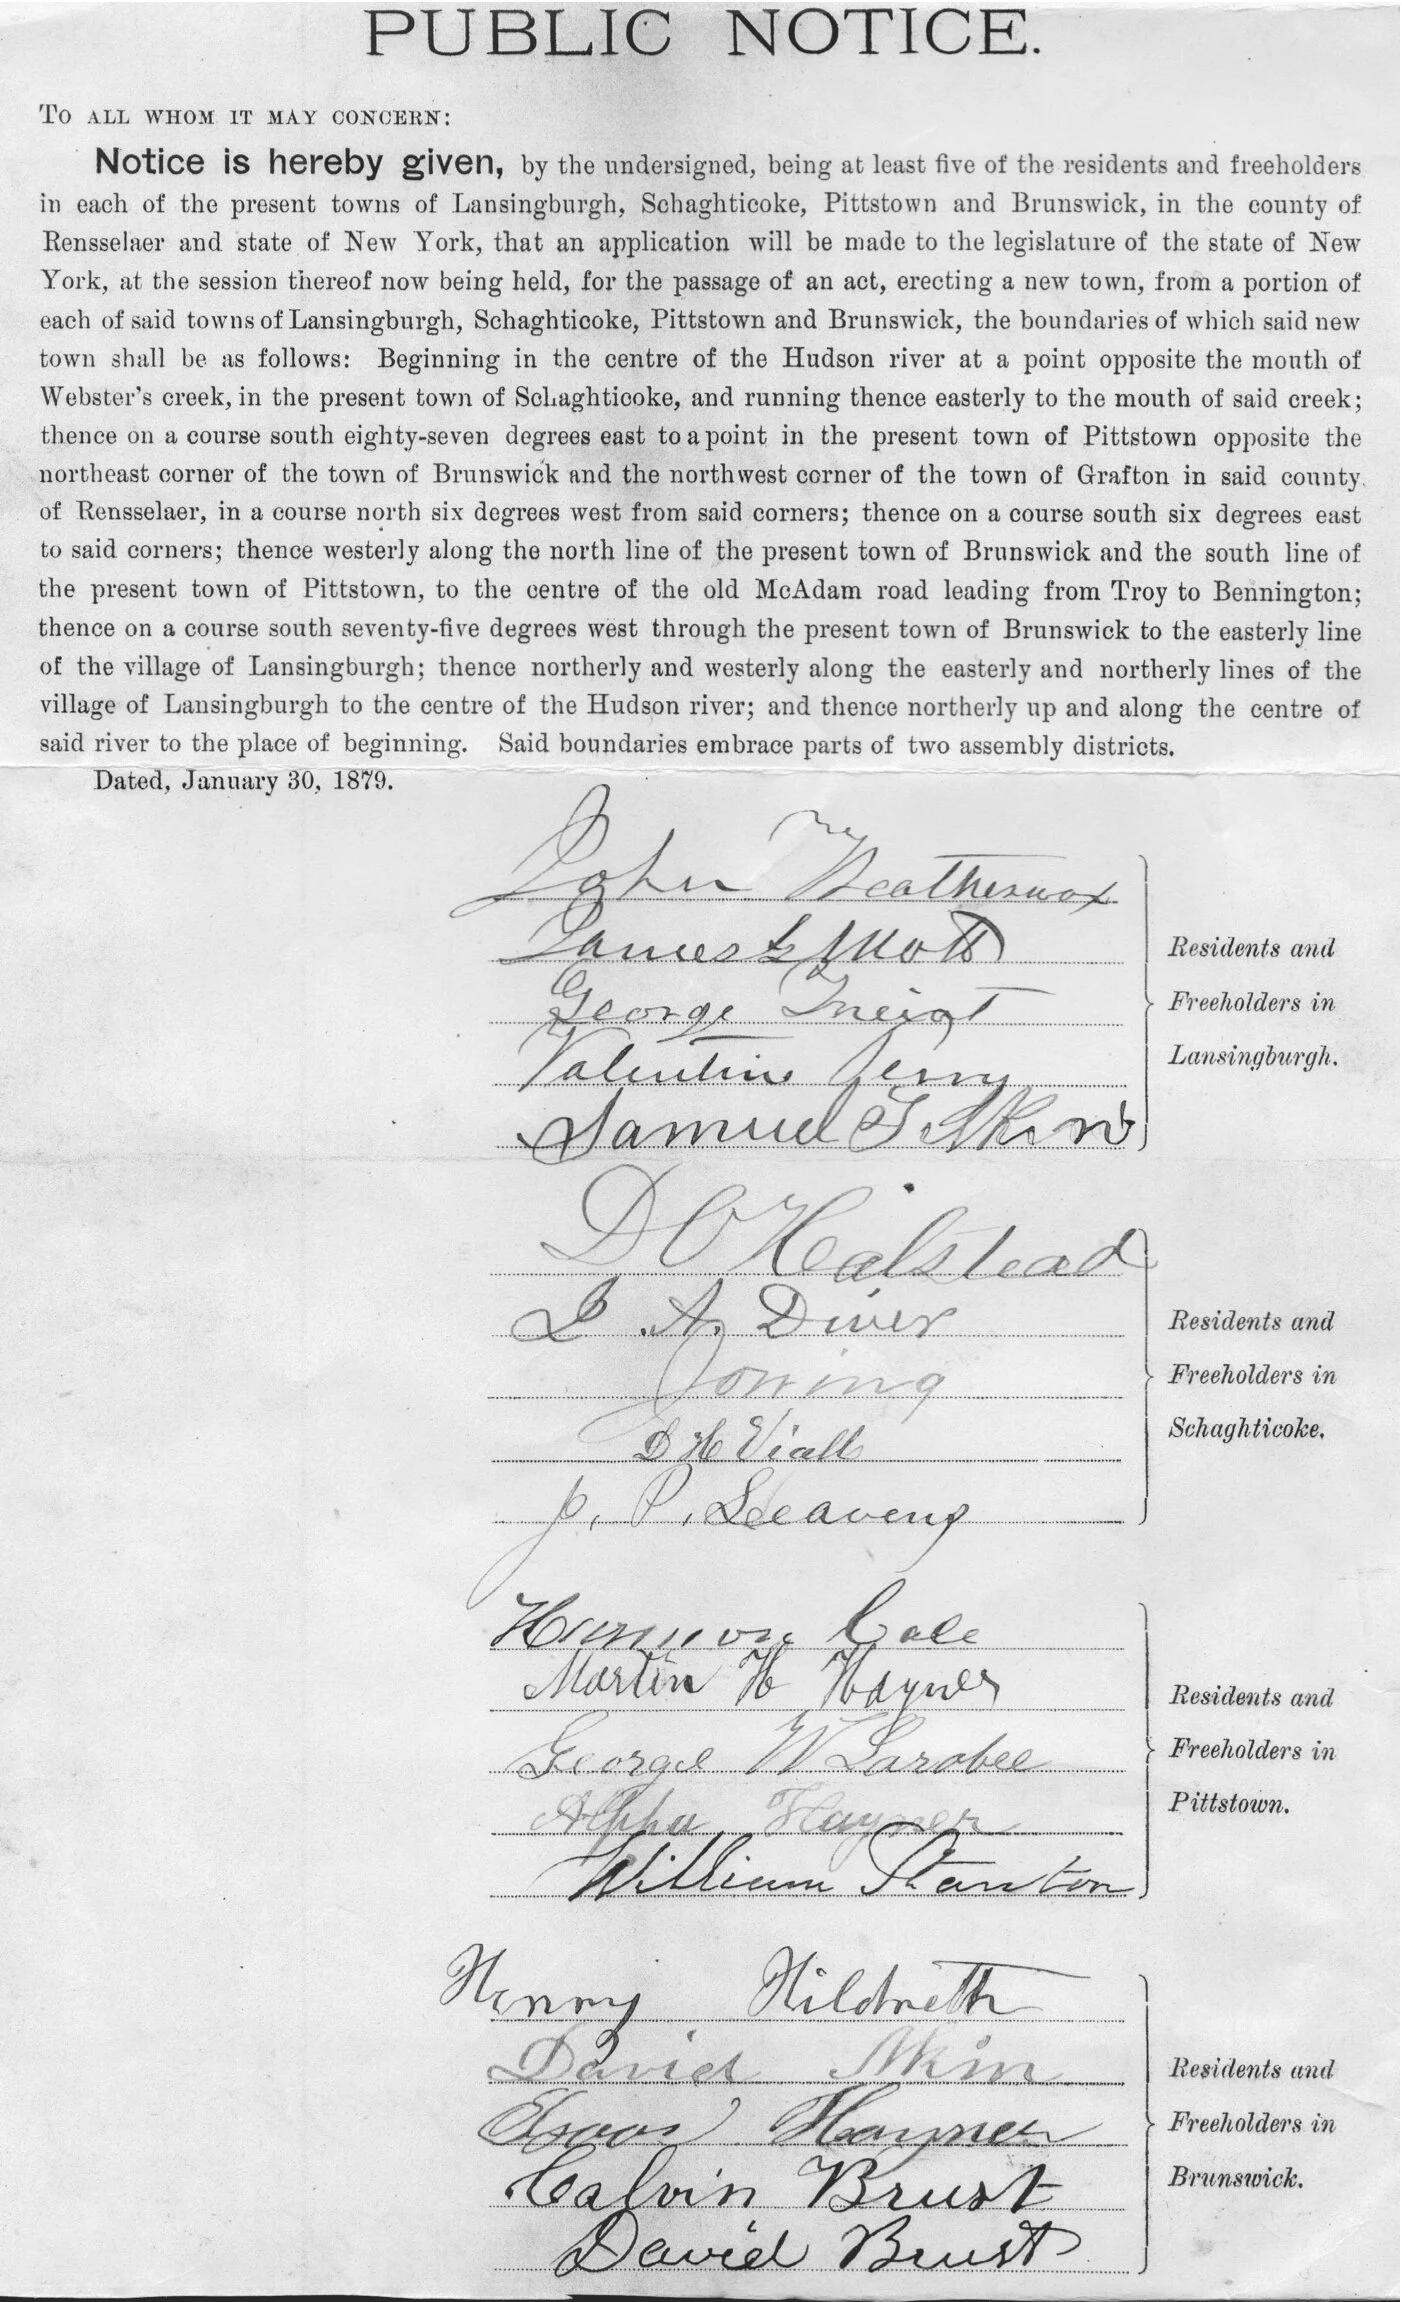 PUBLIC NOTICE.
TO ALL WHOM IT MAY CONCERN:
Notice is hereby given, by the undersigned, being at least five of the residents and freeholders
in each of the present towns of Lansingburgh, Schaghticoke, Pittstown and Brunswick, in the county of
Rensselaer and state of New York, that an application will be made to the legislature of the state of New
York, at the session thereof now being held, for the passage of an act, erecting a new town, from a portion of
each of said towns of Lansingburgh, Schaghticoke, Pittstown and Brunswick, the boundaries of which said new
town shall be as follows: Beginning in the centre of the Hudson river at a point opposite the mouth of
Webster's creek, in the present town of Schaghticoke, and running thence easterly to the mouth of said creek;
thence on a course south eighty-seven degrees east to a point in the present town of Pittstown opposite the
northeast corner of the town of Brunswick and the northwest corner of the town of Grafton in said county
of Rensselaer, in a course north six degrees west from said corners; thence on a course south six degrees east
to said corners; thence westerly along the north line of the present town of Brunswick and the south line of
the present town of Pittstown, to the centre of the old McAdam road leading from Troy to Bennington;
thence on a course south seventy-five degrees west through the present town of Brunswick to the easterly line
of the village of Lansingburgh; thence northerly and westerly along the easterly and northerly lines of the
village of Lansingburgh to the centre of the Hudson river; and thence northerly up and along the centre of
said river to the place of beginning. Said boundaries embrace parts of two assembly districts.
Dated, January 30, 1879.
John Weatherwax
James Mott
George
Valentine Perry
Samuel
Residents and
Freeholders in
Lansingburgh.
D O Halstead
A. Diver
D H Viall
J. P. Leavens
Residents and
Freeholders in
Schaghticoke.
Harmon Cole
Martin H Hayner
George W Larabee
Alpha Hayner
William Stanton
Residents and
Freeholders in
Pittstown.
Henry Hildreth
David Akin
Hayner
Calvin Brust
David Brust
Residents and
Freeholders in
Brunswick.